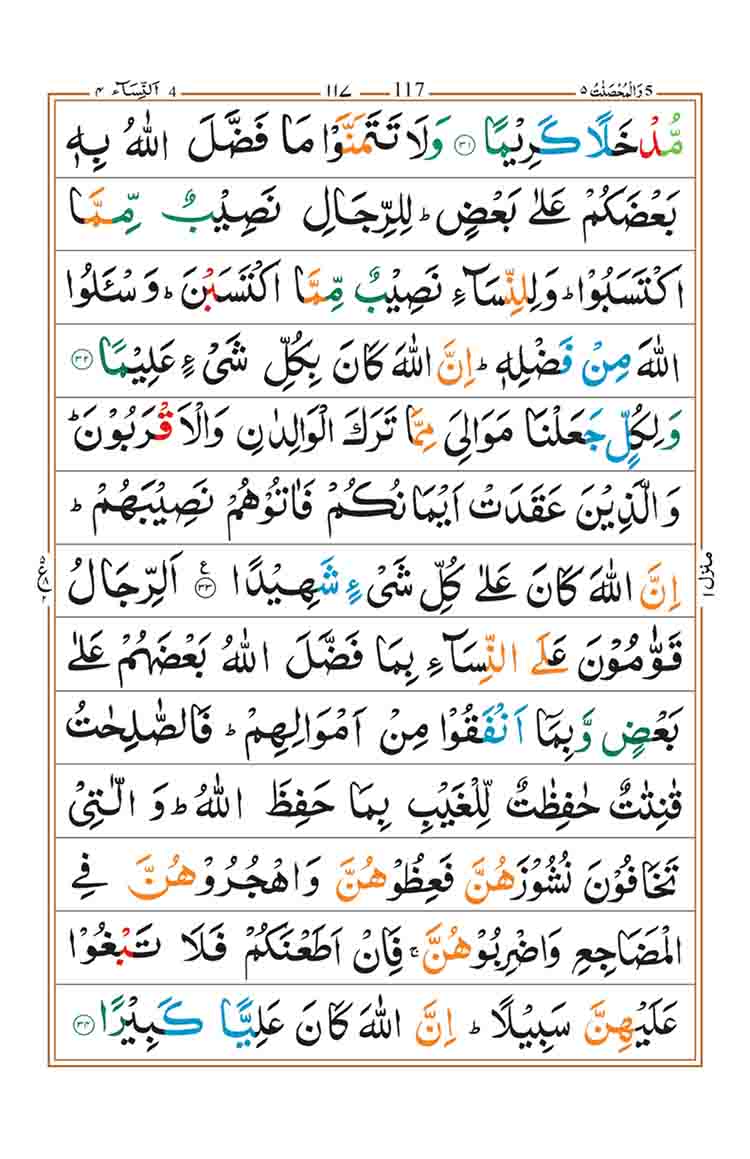 5 وَالْمُحْصَنٰتُ ٥ 117 ١١٧ 4 اَلنِّسَآء ٤
مُّدْخَلًا كَرِيْمًا ﴿٣١﴾ وَلَا تَتَمَنَّوْا مَا فَضَّلَ اللّٰهُ بِهٖ
بَعْضَكُمْ عَلٰى بَعْضٍ ؕ لِلرِّجَالِ نَصِيْبٌ مِّمَّا
اكْتَسَبُوْا ؕ وَلِلنِّسَآءِ نَصِيْبٌ مِّمَّا اكْتَسَبْنَ ؕ وَسْئَلُوا
اللّٰهَ مِنْ فَضْلِهٖ ؕ اِنَّ اللّٰهَ كَانَ بِكُلِّ شَیْءٍ عَلِيْمًا ﴿٣٢﴾
وَلِكُلٍّ جَعَلْنَا مَوَالِیَ مِمَّا تَرَكَ الْوَالِدٰنِ وَالْاَقْرَبُوْنَ ؕ
وَالَّذِيْنَ عَقَدَتْ اَيْمَانُكُمْ فَاٰتُوْهُمْ نَصِيْبَهُمْ ؕ
اِنَّ اللّٰهَ كَانَ عَلٰى كُلِّ شَیْءٍ شَهِيْدًا ﴿٣٣﴾ ع اَلرِّجَالُ
قَوّٰمُوْنَ عَلَى النِّسَآءِ بِمَا فَضَّلَ اللّٰهُ بَعْضَهُمْ عَلٰى
بَعْضٍ وَّبِمَاۤ اَنْفَقُوْا مِنْ اَمْوَالِهِمْ ؕ فَالصّٰلِحٰتُ
قٰنِتٰتٌ حٰفِظٰتٌ لِّلْغَيْبِ بِمَا حَفِظَ اللّٰهُ ؕ وَالّٰتِیْ
تَخَافُوْنَ نُشُوْزَهُنَّ فَعِظُوْهُنَّ وَاهْجُرُوْهُنَّ فِی
الْمَضَاجِعِ وَاضْرِبُوْهُنَّ ۚ فَاِنْ اَطَعْنَكُمْ فَلَا تَبْغُوْا
عَلَيْهِنَّ سَبِيْلًا ؕ اِنَّ اللّٰهَ كَانَ عَلِيًّا كَبِيْرًا ﴿٣٤﴾
منزل ١